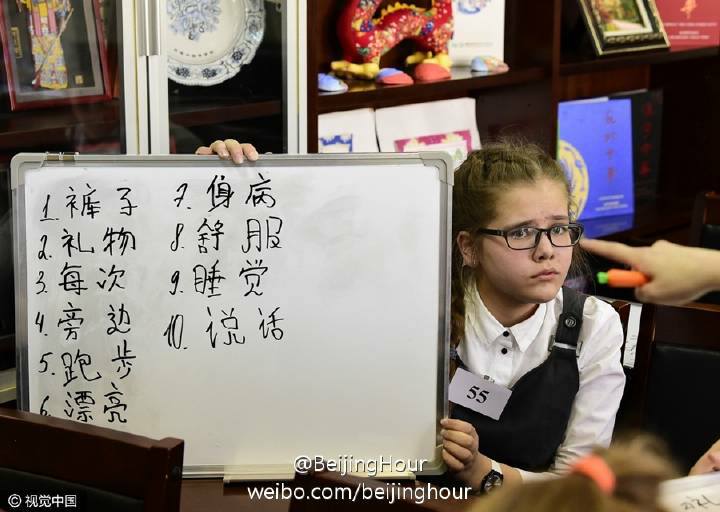 1. 裤子
2. 礼物
3. 每次
4. 旁边
5. 跑步
6. 漂亮
7. 身病
8. 舒服
9. 睡觉
10. 说话
55
@BeijingHour
weibo.com/beijinghour
© 视觉中国